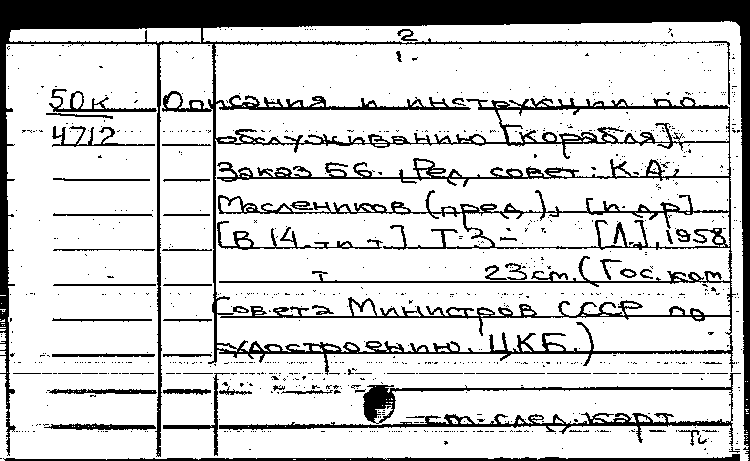 2.
1.
50к Описания и инструкции по
4712 обслуживанию [корабля]
Заказ 56. [Ред. совет: К.А.
Маслеников (пред.), [и др]
[В 14-ти т.] Т.3- [Л.], 1958
т. 23 см. (Гос. ком
Совета Министров СССР по
судостроению. ЦКБ.)
см. след. карт